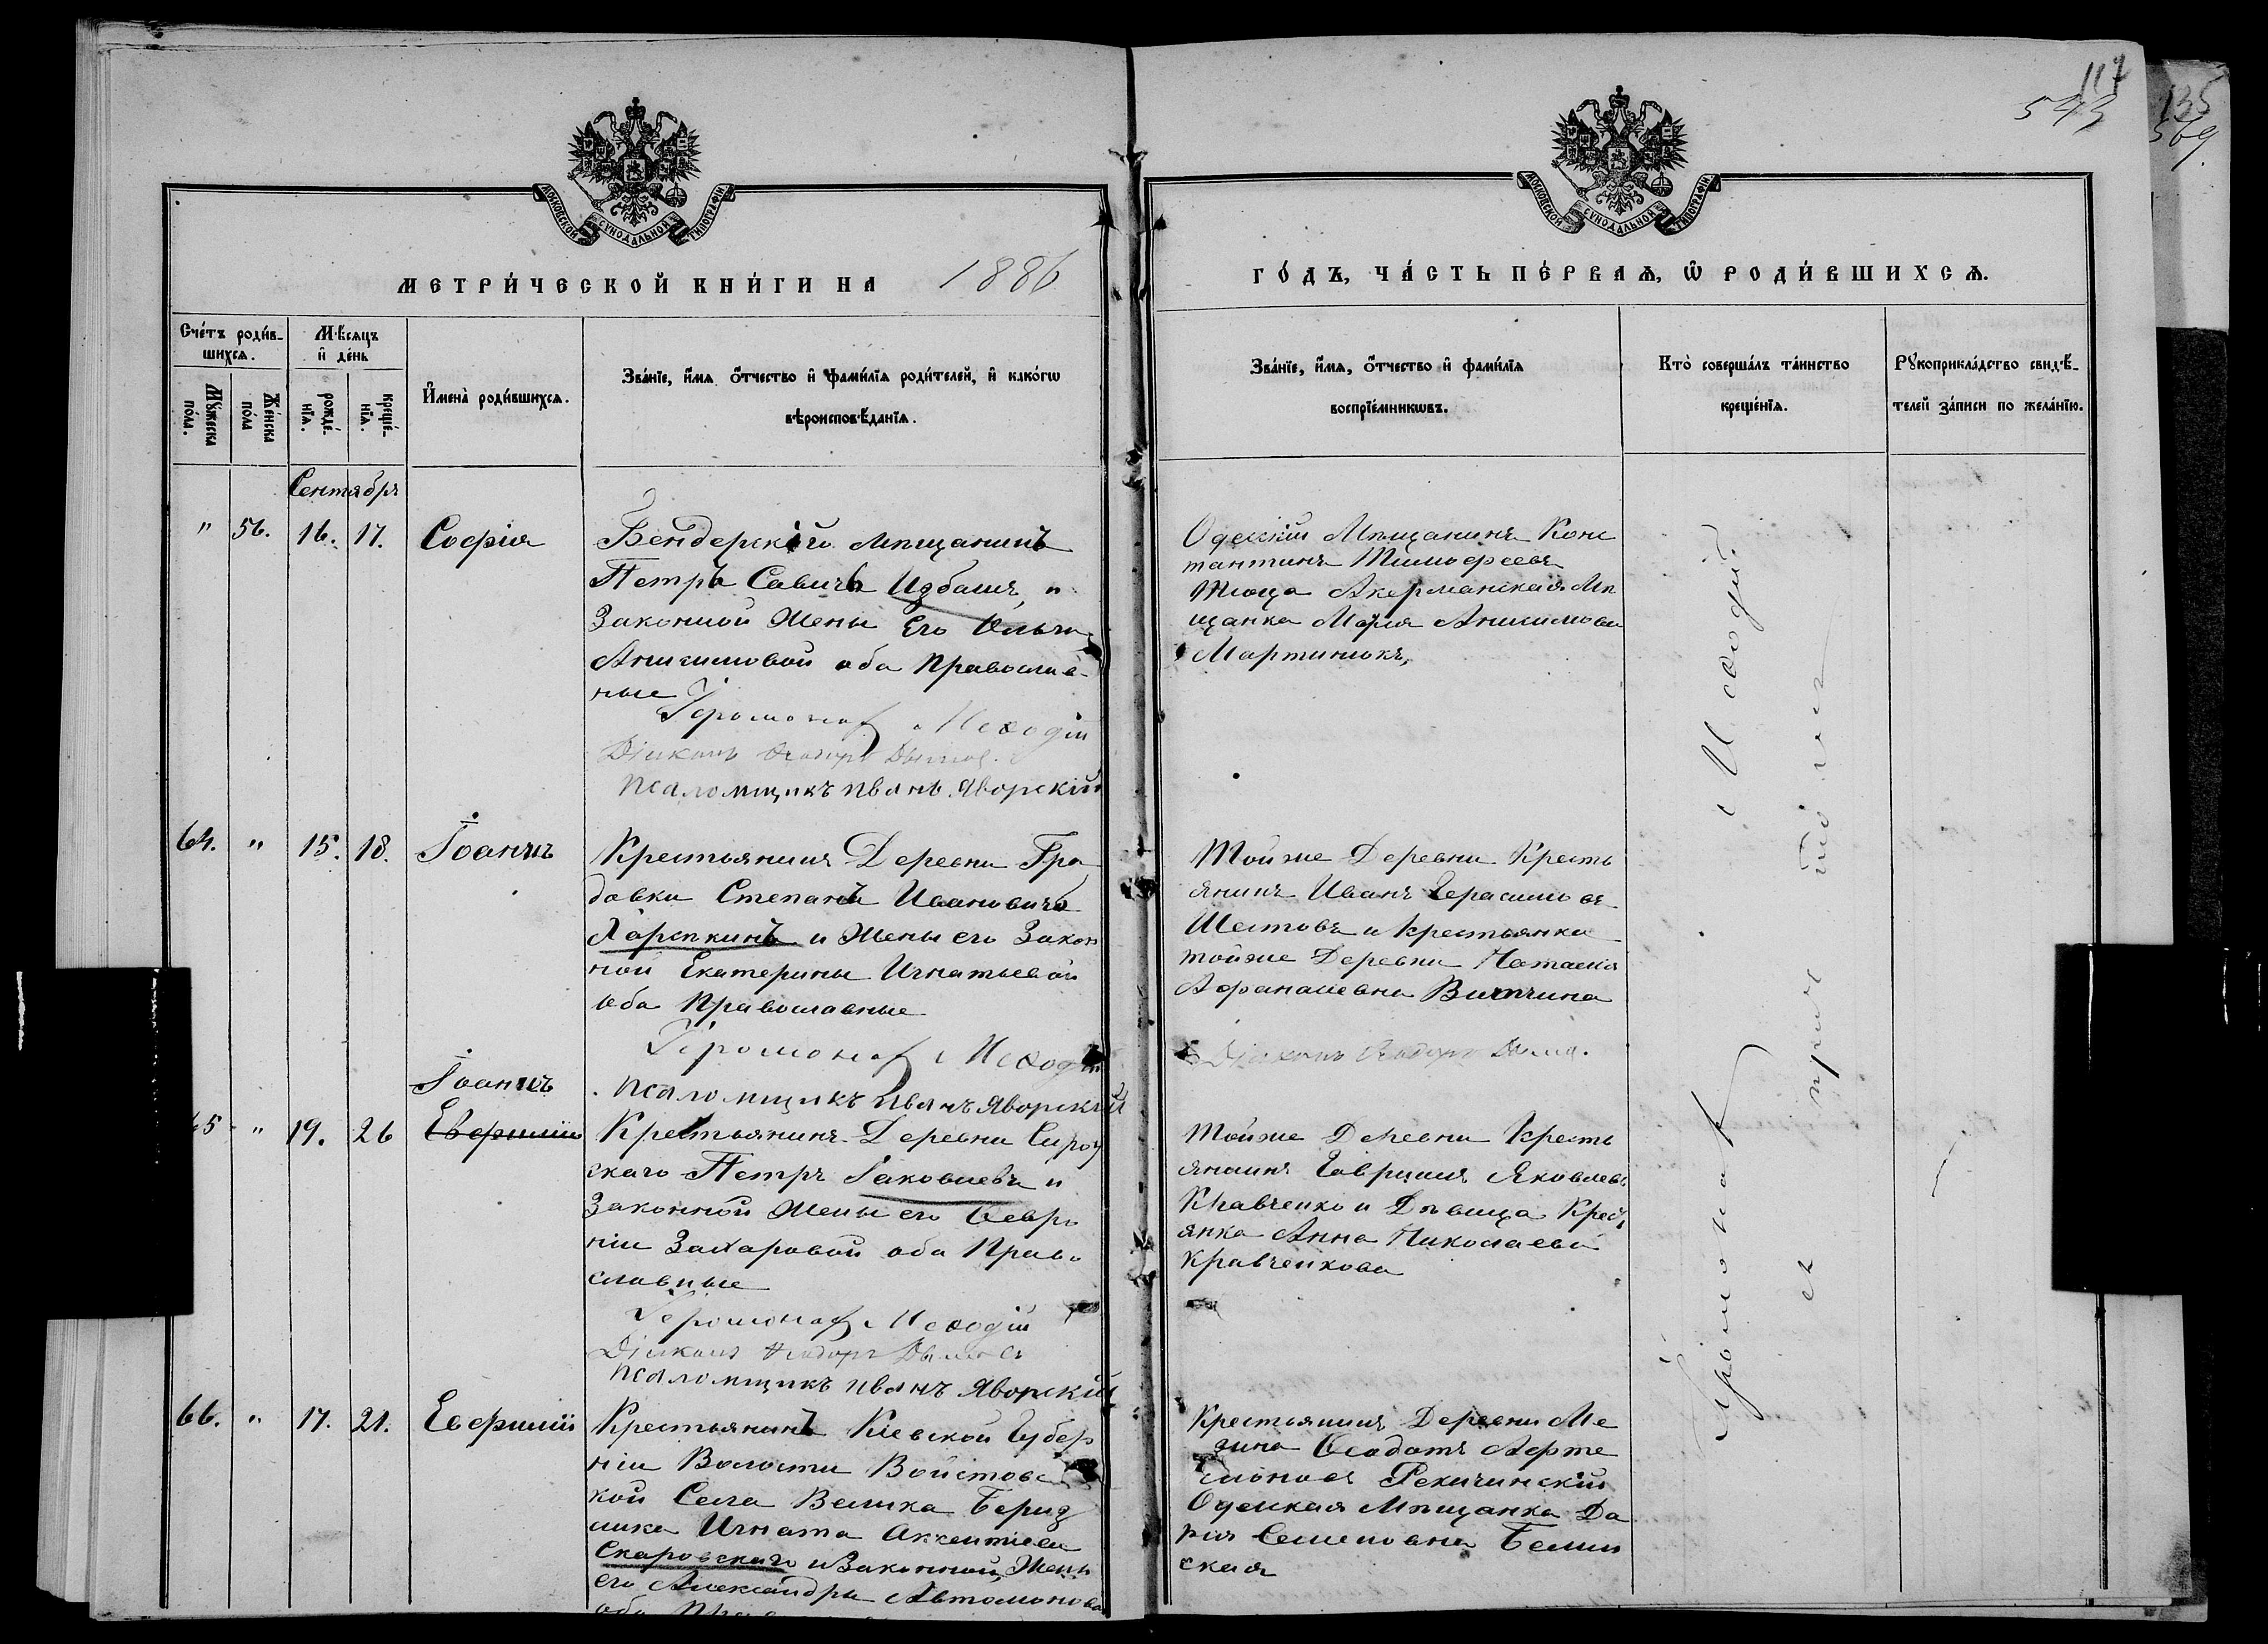 117
543
135
569.
МОСКОВСКОЙ СУНОДАЛЬНОЙ ТИПОГРАФІИ
МОСКОВСКОЙ СУНОДАЛЬНОЙ ТИПОГРАФІИ
МЕТРИ́ЧЕСКОЙ КНИ́ГИ НА 1886
ГО́ДЪ, ЧА́СТЬ ПЕ́РВАѦ, Ѡ РОДИ́ВШИХСѦ.
Сче́тъ роди́в-
шихсѧ.
Мѣ́сѧцъ
и҆ де́нь
Мꙋ́жеска
по́ла.
Же́нска
по́ла
рожде́-
нїѧ.
креще́-
нїѧ.
И҆мена̀ роди́вшихсѧ.
Зва́нїе, и҆́мѧ, ѻ҆́тчество и҆ фами́лїѧ роди́телей, и҆ како́гѡ
вѣроисповѣ́данїѧ.
Зва́нїе, и҆́мѧ, ѻ҆́тчество и҆ фами́лїѧ
воспрїе́мникѡвъ.
Кто̀ соверша́лъ та́инство
креще́нїѧ.
Рꙋкоприкла́дство свидѣ́-
телей за́писи по жела́нїю.
Сентября
" 56. 16. 17. Софія
Бендерскаго мѣщанинъ
Петръ Савичъ Избашъ, и
Законной Жены Его Ольги
Анисимовой оба Православ-
ные
Іеромонах Меѳодій
Діаконъ Ѳеодоръ
псаломщикъ иванъ Яворскій
Одескій Мѣщанинъ Конс
тантинъ Тимофеевъ
Акерманская Мѣ
щанка Марія Анисимова
Мартинюкъ,
64. " 15. 18. Іоаннъ
Крестьянинъ Деревни Гра
довки Степанъ Ивановичъ
Харепкинъ и Жены его Закон
ной Екатерины Игнатьевой
оба Православные
Іеромонах Меѳодій
псаломщикъ иванъ Яворскій
Тойже Деревни Кресть
янинъ Иванъ Герасимовъ
Шестовъ и крестьянка
тойже Деревни Наталія
Афанасіевна
Діаконъ Ѳеодоръ
Іоаннъ
65 " 19. 26 Евфимій
Крестьянинъ Деревни
скаго Петръ Іаковлевъ и
Законной Жены его Февро
ніи Захаровой оба Право
славные
Іеромонах Меѳодій
Діаконъ Ѳеодоръ
псаломщикъ иванъ Яворскій
Тойже Деревни Кресть
янинъ Гавриилъ Яковлевъ
Кравченко и Дѣвица Крест
янка Анна Николаева
Кравченкова
66. " 17. 21. Евфимій
Крестьянинъ Кіевской Губер
ніи Волости Войтовс
кой Села Велика Берез
Игната
Скаровскаго и Законной Жены
его Александры Автомонова
оба
Крестьянинъ Деревни Ме
зина Ѳеодотъ Арте
моновъ Рекичинскій
Одеская Мѣщанка Да
рія Семеновна
ская
Іеромонах Меѳодій